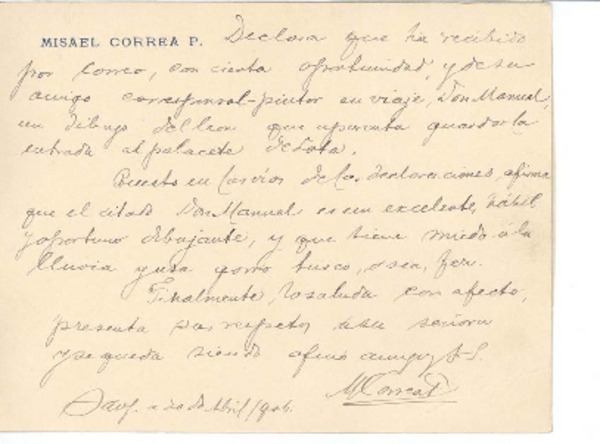 MISAEL CORREA P. Declara que ha recibido
por correo, con cierta oportunidad, y de su
amigo corresponsal-pintor en viaje, Don Manuel,
un dibujo del leon que aparenta guardar la
entrada al palacete de Lota.
Puesto en las vías de las declaraciones, afirma
que el citado Don Manuel es un excelente, hábil
y oportuno dibujante, y que tiene miedo á la
lluvia y usa gorro turco, o sea, fez.
Finalmente, lo saluda con afecto,
presenta sus respetos a su señora
y se queda siendo afmo amigo y S.S.
MCorreaP
a 20 de Abril/906.